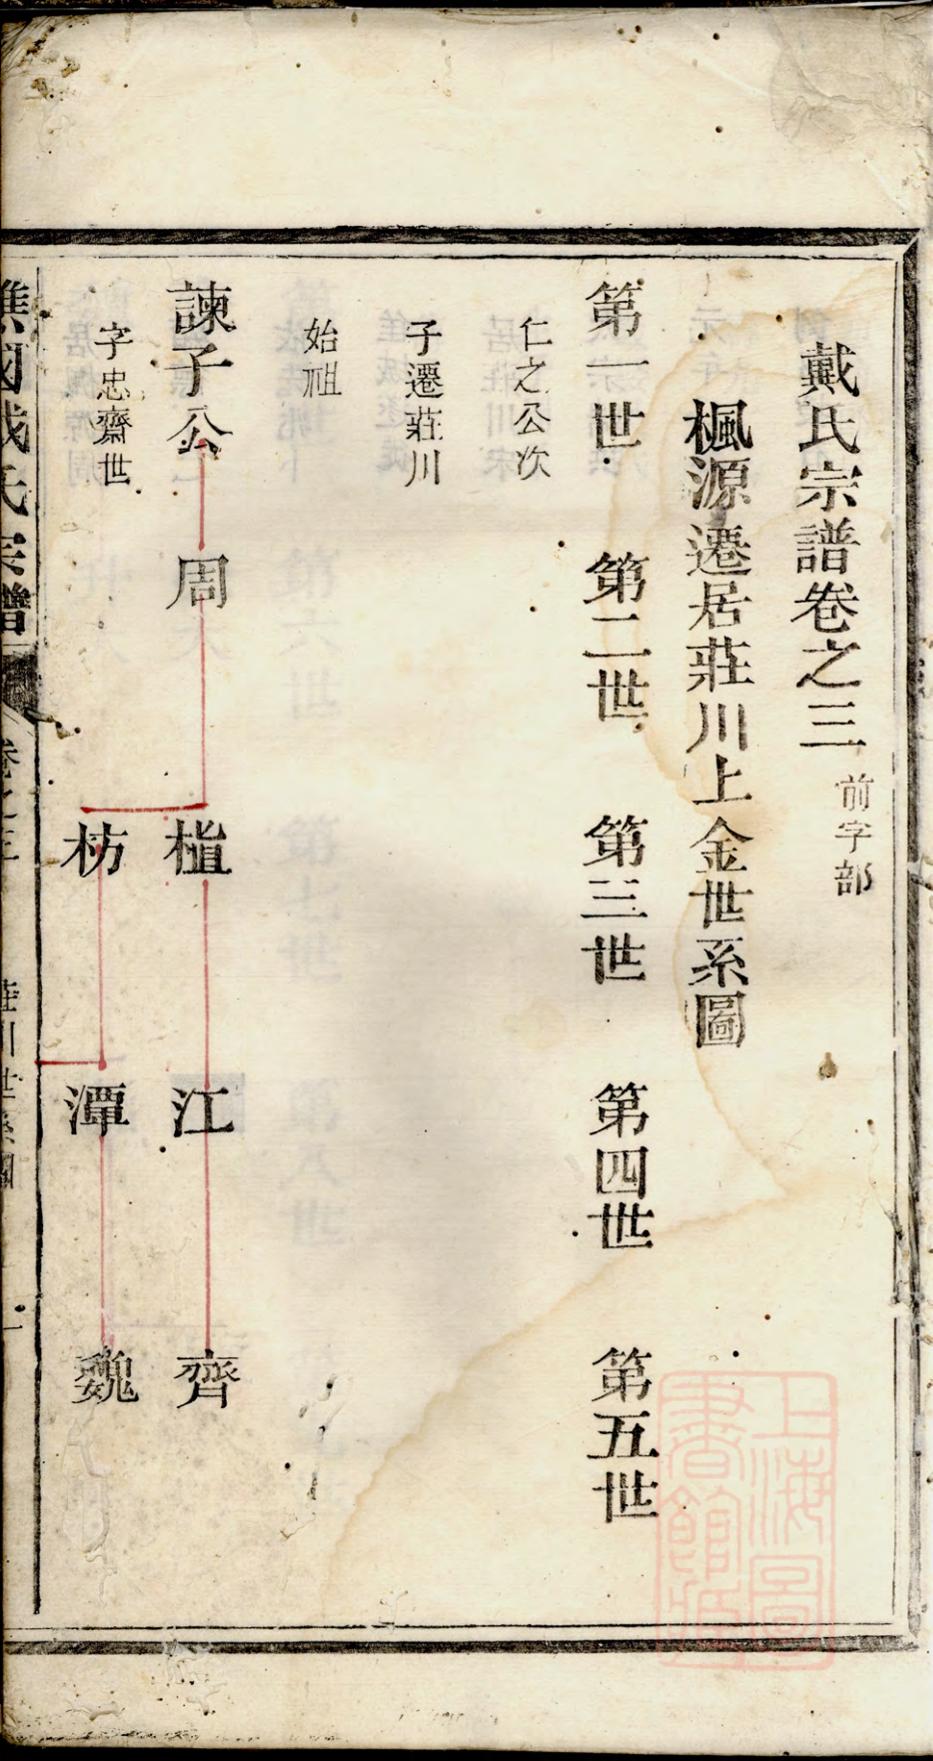 戴氏宗譜卷之三 前字部
楓源遷居莊川上金世系圖
第一世 第二世 第三世 第四世 第五世
仁之公次
子遷莊川
始祖
諫子公 周 植 江 齊
字忠齋世
枋 潭 魏
譙國戴氏宗譜 卷之三 莊川世系圖 一
上海圖
書館藏